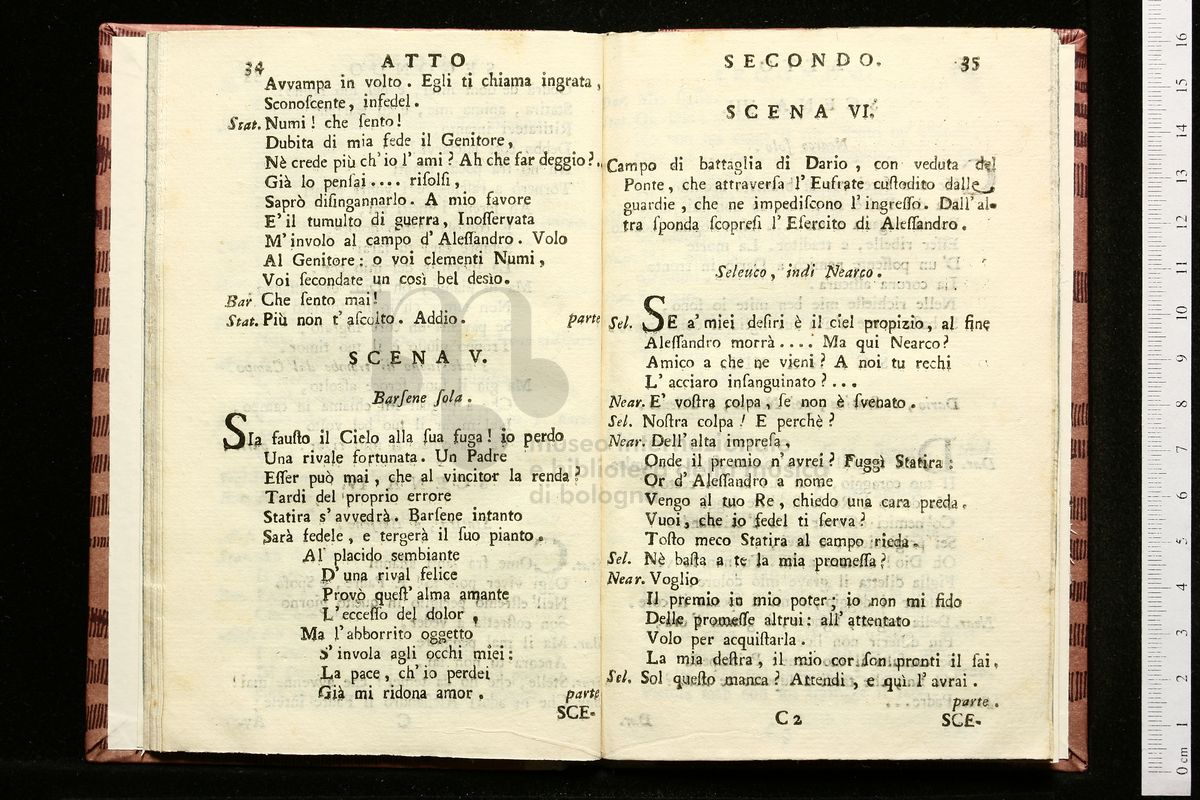 34 ATTO
Avvampa in volto. Egli ti chiama ingrata,
Sconoſcente, infedel.
Stat. Numi! che ſento!
Dubita di mia fede il Genitore,
Nè crede più ch'io l'ami? Ah che far deggio?..
Già lo penſai.... riſolſi,
Saprò diſingannarlo. A mio favore
E' il tumulto di guerra, Inoſſervata
M'involo al campo d'Aleſſandro. Volo
Al Genitore: o voi clementi Numi,
Voi ſecondate un così bel desìo.
Bar Che ſento mai!
Stat. Più non t'aſcolto. Addio. parte
SCENA V.
Barſene ſola.
SIa fauſto il Cielo alla ſua fuga! io perdo
Una rivale fortunata. Un Padre
Eſſer può mai, che al vincitor la renda?
Tardi del proprio errore
Statira s'avvedrà. Barſene intanto
Sarà fedele, e tergerà il ſuo pianto.
Al placido ſembiante
D'una rival felice
Provò queſt'alma amante
L'ecceſſo del dolor,
Ma l'abborrito oggetto
S'invola agli occhi miei:
La pace, ch'io perdei
Già mi ridona amor. parte
SCE-
SECONDO. 35
SCENA VI.
Campo di battaglia di Dario, con veduta del
Ponte, che attraverſa l'Eufrate cuſtodito dalle
guardie, che ne impediſcono l'ingreſſo. Dall'al-
tra ſponda ſcopreſi l'Eſercito di Aleſſandro.
Seleuco, indi Nearco.
Sel. SE a' miei deſiri è il ciel propizio, al fine
Aleſſandro morrà.... Ma qui Nearco?
Amico a che ne vieni? A noi tu rechi
L'acciaro inſanguinato?...
Near. E' voſtra colpa, ſe non è ſvenato.
Sel. Noſtra colpa! E perchè?
Near. Dell'alta impreſa,
Onde il premio n'avrei? Fuggì Statira:
Or d'Aleſſandro a nome
Vengo al tuo Re, chiedo una cara preda.
Vuoi, che io fedel ti ſerva?
Toſto meco Statira al campo rieda.
Sel. Nè baſta a te la mia promeſſa?
Near. Voglio
Il premio in mio poter; io non mi fido
Delle promeſſe altrui: all'attentato
Volo per acquiſtarla.
La mia deſtra, il mio cor ſon pronti il ſai.
Sel. Sol queſto manca? Attendi, e quì l'avrai.
parte.
C 2 SCE-
museo internazionale
e biblioteca della musica
di bologna
16
15
14
13
12
11
10
9
8
7
6
5
4
3
2
1
0 cm